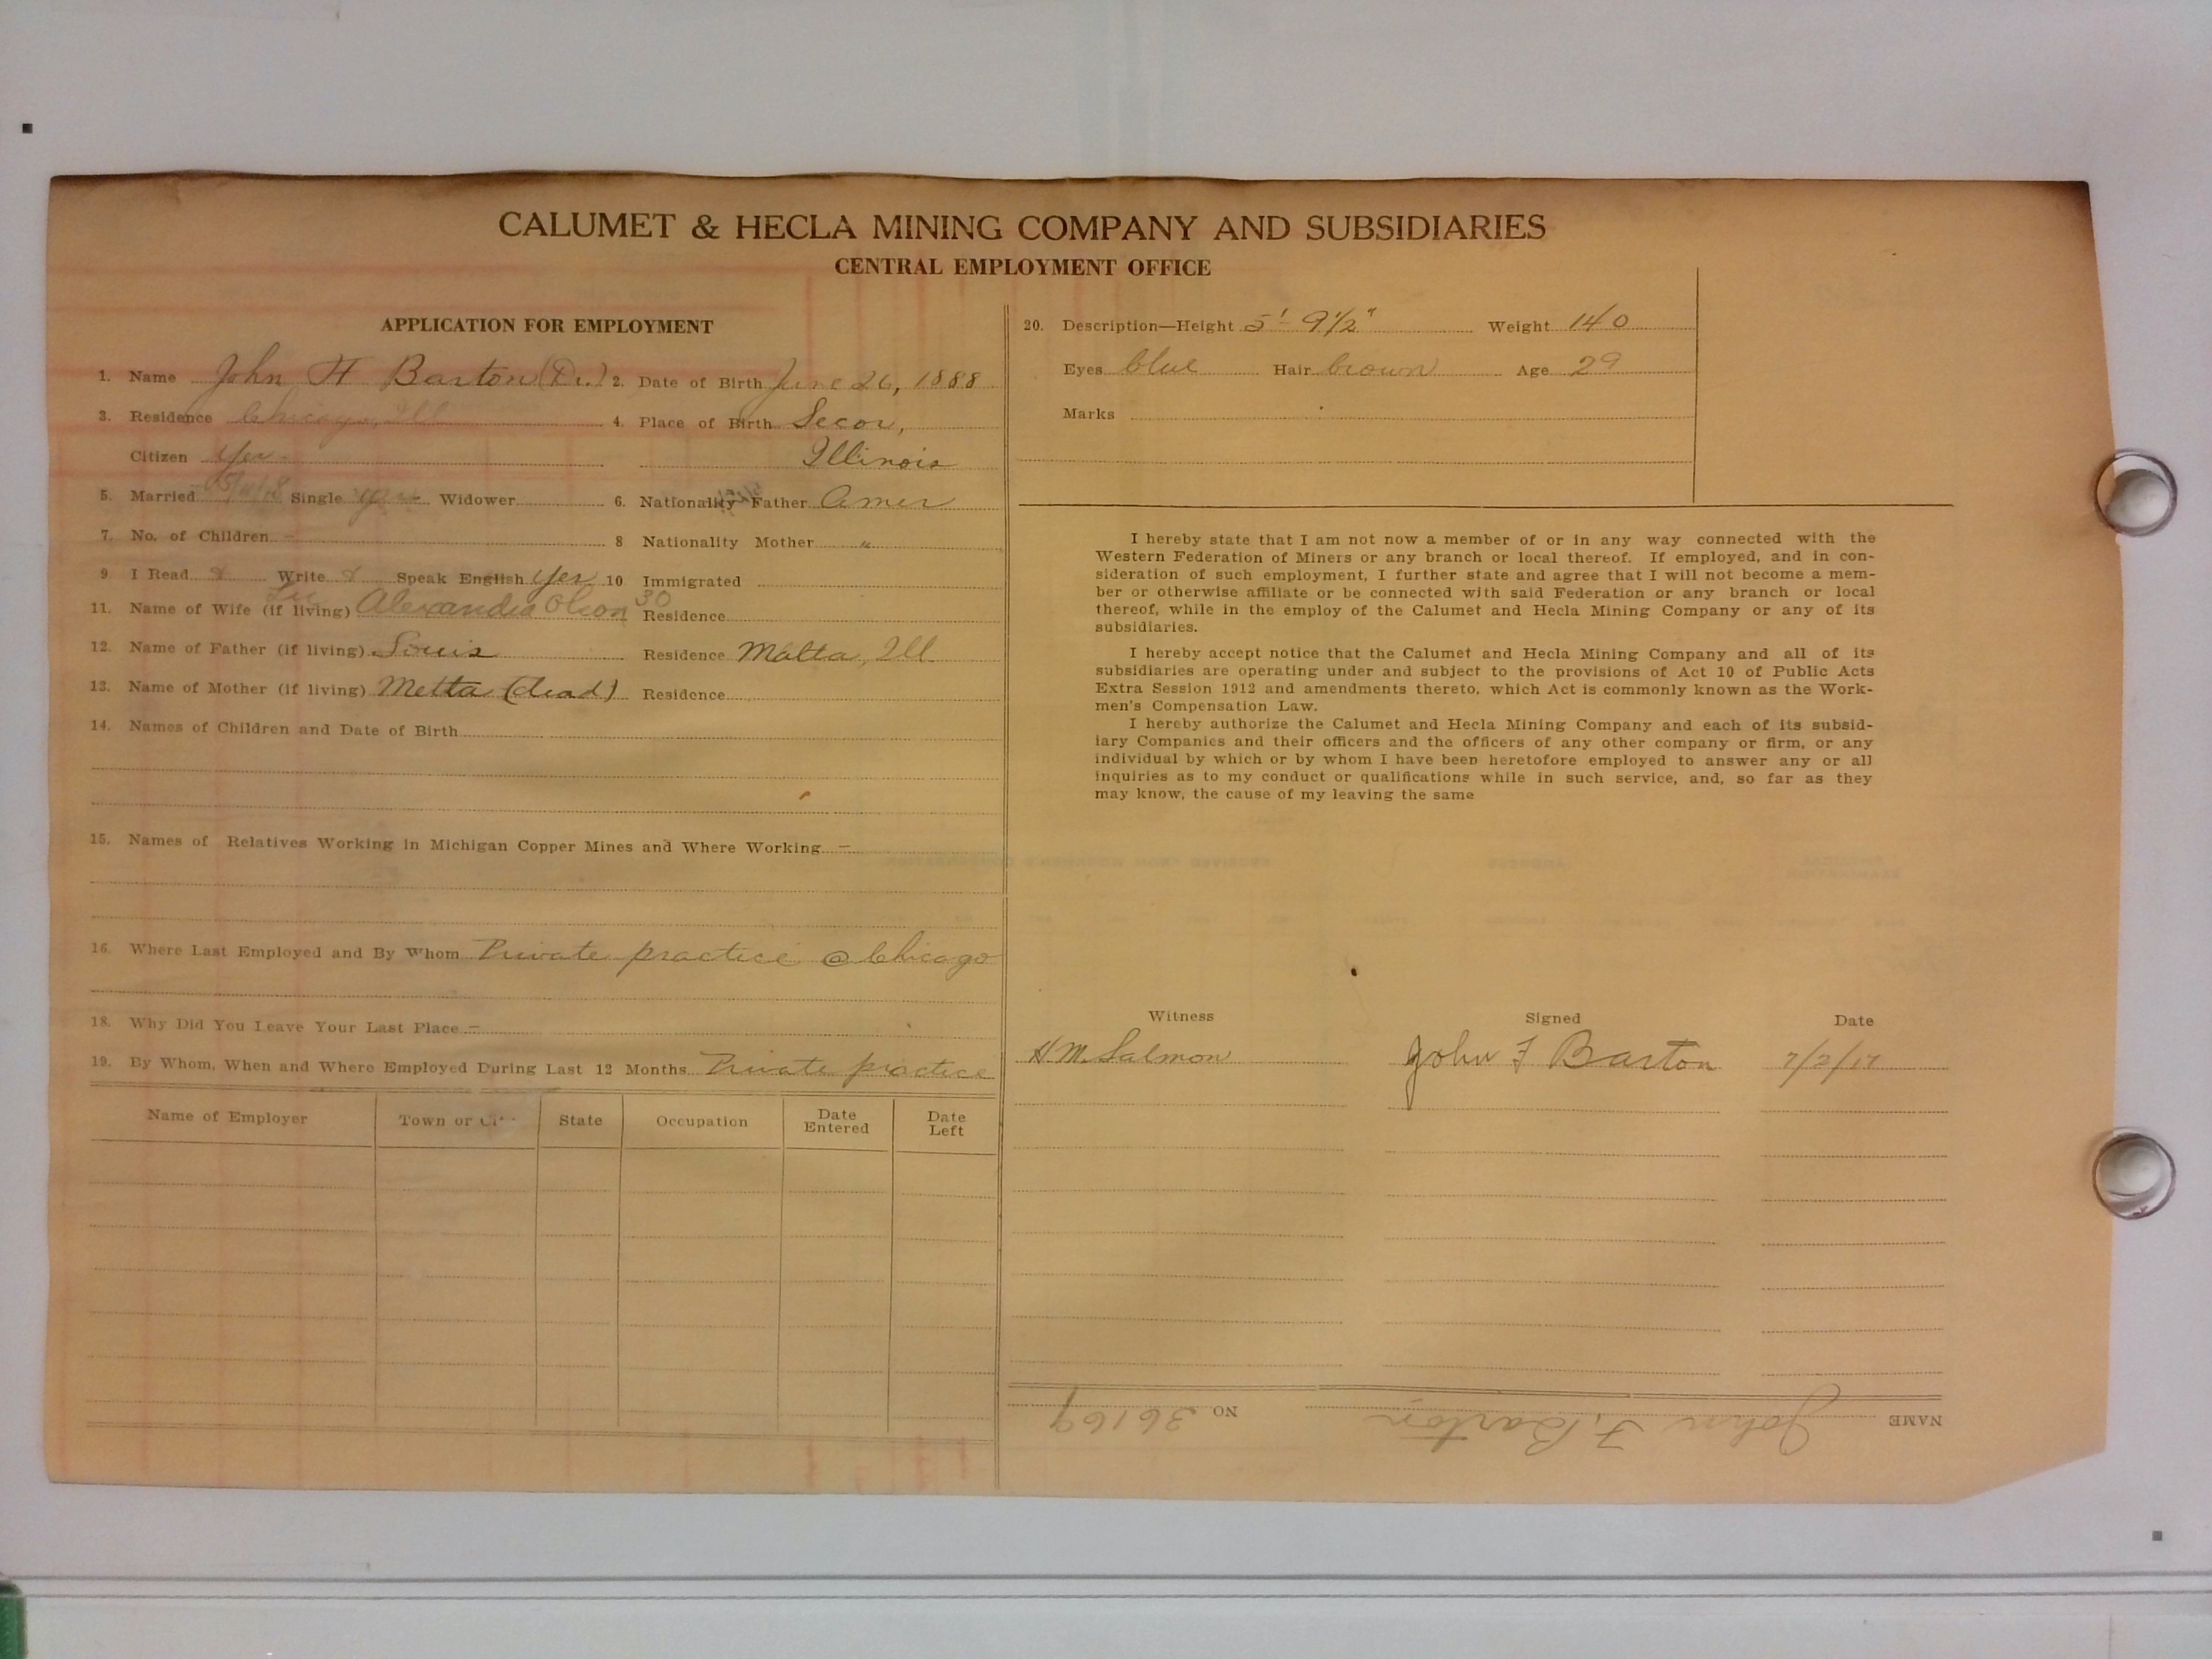 CALUMET & HECLA MINING COMPANY AND SUBSIDIARIES
CENTRAL EMPLOYMENT OFFICE
APPLICATION FOR EMPLOYMENT
1. Name John H Barton (Dr.) 2. Date of Birth June 26, 1888
3. Residence Chicago, Ill 4. Place of Birth Secor,
Citizen Yes - Illinois
5. Married Single yes Widower 6. Nationality Father Amer
7. No. of Children - 8 Nationality Mother "
9. I Read Write Speak English Yes 10. Immigrated
11. Name of Wife (if living) Alexandra Olson 30 Residence
12. Name of Father (if living) Louis Residence Malta, Ill
13. Name of Mother (if living) Metta (dead) Residence
14. Names of Children and Date of Birth
15. Names of Relatives Working in Michigan Copper Mines and Where Working -
16. Where Last Employed and By Whom Private practice @ Chicago
18. Why Did You Leave Your Last Place -
19. By Whom, When and Where Employed During Last 12 Months Private practice
Name of Employer Town or State Occupation Date Entered Date Left
20. Description—Height 5'- 9½" Weight 140
Eyes blue Hair brown Age 29
Marks
I hereby state that I am not now a member of or in any way connected with the
Western Federation of Miners or any branch or local thereof. If employed, and in con-
sideration of such employment, I further state and agree that I will not become a mem-
ber or otherwise affiliate or be connected with said Federation or any branch or local
thereof, while in the employ of the Calumet and Hecla Mining Company or any of its
subsidiaries.
I hereby accept notice that the Calumet and Hecla Mining Company and all of its
subsidiaries are operating under and subject to the provisions of Act 10 of Public Acts
Extra Session 1912 and amendments thereto, which Act is commonly known as the Work-
men's Compensation Law.
I hereby authorize the Calumet and Hecla Mining Company and each of its subsid-
iary Companies and their officers and the officers of any other company or firm, or any
individual by which or by whom I have been heretofore employed to answer any or all
inquiries as to my conduct or qualifications while in such service, and, so far as they
may know, the cause of my leaving the same
Witness Signed Date
H M. Salmon John F Barton 7/2/17
NAME John F. Barton NO. 36169